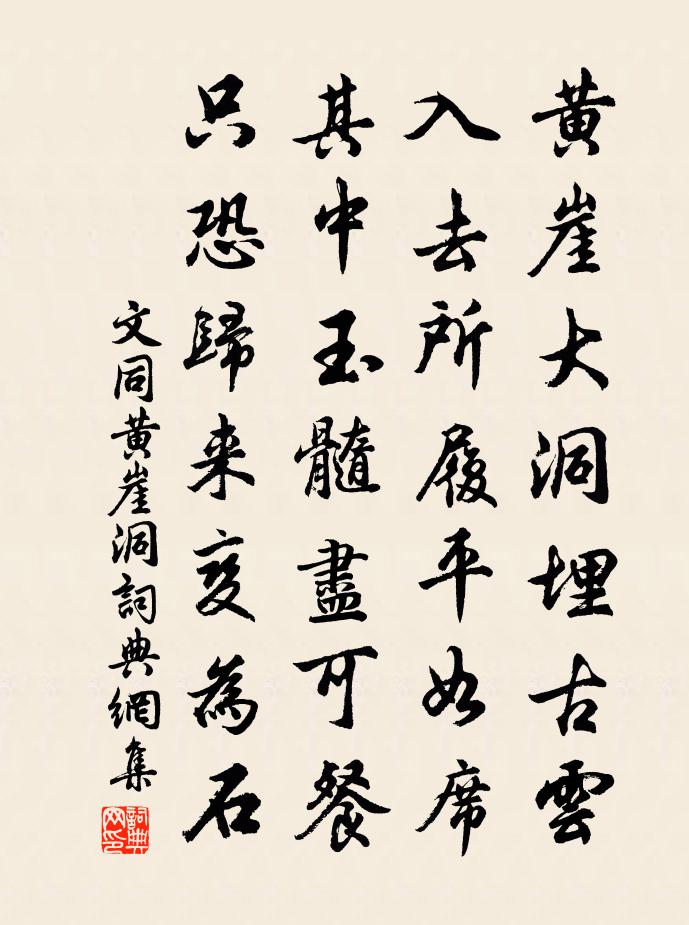 黄崖大洞埋古雲
入去所履平如席
其中玉髓盡可餐
只恐歸来变為石
文同黄崖洞詞典網集
詞典网印